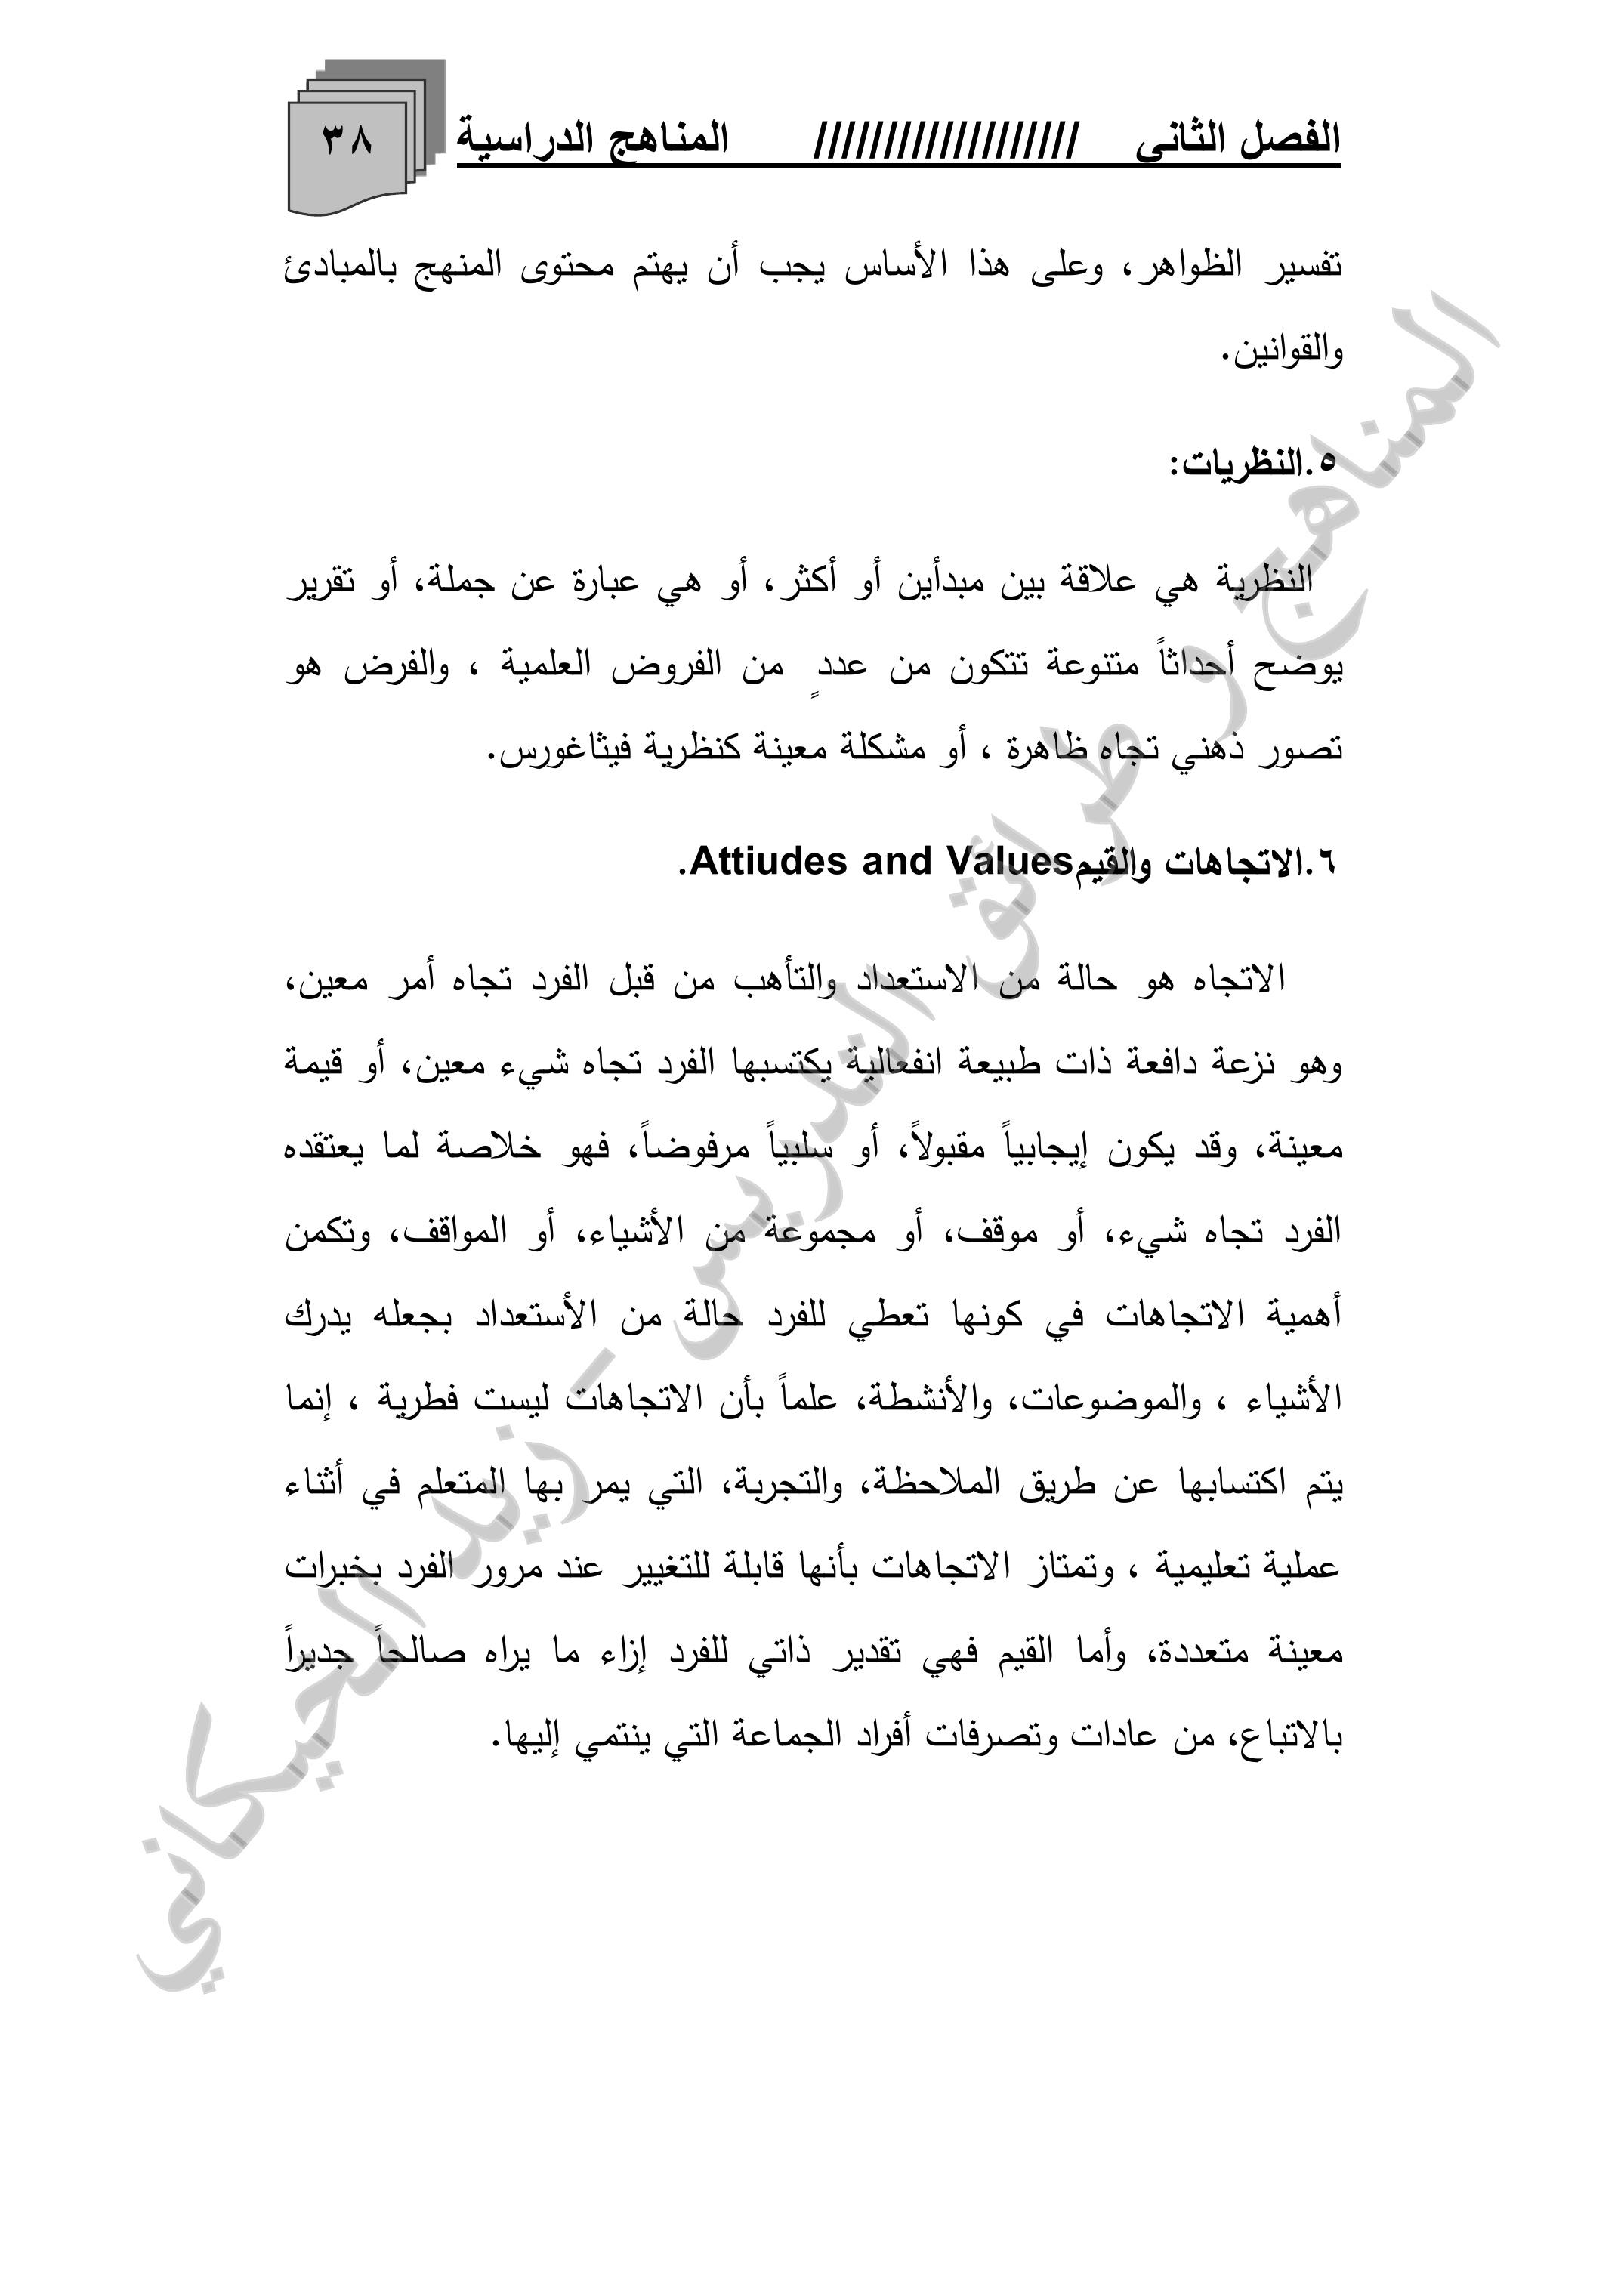 الفصل الثاني /////////////////// المناهج الدراسية ٣٨
تفسير الظواهر، وعلى هذا الأساس يجب أن يهتم محتوى المنهج بالمبادئ
والقوانين.
٥.النظريات:
النظرية هي علاقة بين مبدأين أو أكثر، أو هي عبارة عن جملة، أو تقرير
يوضح أحداثاً متنوعة تتكون من عددٍ من الفروض العلمية ، والفرض هو
تصور ذهني تجاه ظاهرة ، أو مشكلة معينة كنظرية فيثاغورس.
٦.الاتجاهات والقيمAttiudes and Values.
الاتجاه هو حالة من الاستعداد والتأهب من قبل الفرد تجاه أمر معين،
وهو نزعة دافعة ذات طبيعة انفعالية يكتسبها الفرد تجاه شيء معين، أو قيمة
معينة، وقد يكون إيجابياً مقبولاً، أو سلبياً مرفوضاً، فهو خلاصة لما يعتقده
الفرد تجاه شيء، أو موقف، أو مجموعة من الأشياء، أو المواقف، وتكمن
أهمية الاتجاهات في كونها تعطي للفرد حالة من الأستعداد بجعله يدرك
الأشياء ، والموضوعات، والأنشطة، علماً بأن الاتجاهات ليست فطرية ، إنما
يتم اكتسابها عن طريق الملاحظة، والتجربة، التي يمر بها المتعلم في أثناء
عملية تعليمية ، وتمتاز الاتجاهات بأنها قابلة للتغيير عند مرور الفرد بخبرات
معينة متعددة، وأما القيم فهي تقدير ذاتي للفرد إزاء ما يراه صالحاً جديراً
بالاتباع، من عادات وتصرفات أفراد الجماعة التي ينتمي إليها.
المناهج و طرائق التدريس - زيد الحيكاني